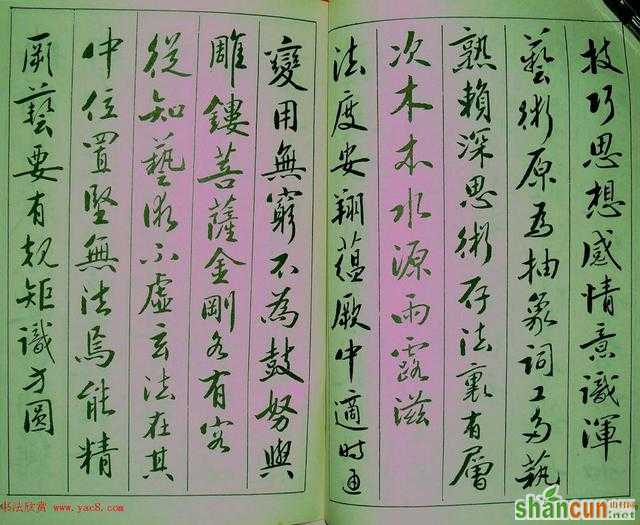 技巧思想感情意識渾
藝術原為抽象詞工多藝
熟賴深思術存法裏有層
次木本水源雨露滋
法度安翔蘊厥中適時通
變用無窮不為鼓努與
雕鏤菩薩金剛各有容
從知藝術不虛玄法在其
中位置堅無法焉能精
厥藝要有規矩識方圓
书法欣赏 www.yac8.com
shancun
.net